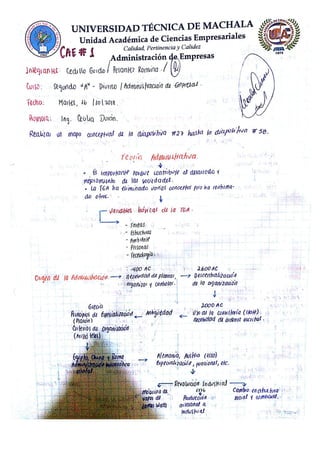 UNIVERSIDAD TÉCNICA DE MACHALA
Unidad Académica de Ciencias Empresariales
Calidad, Pertinencia y Calidez
CAE #1
Administración de Empresas
Integrantes: Cedillo Guido / Romero /
Curso: Segundo "A" - Diurno / Administración de Empresas.
Fecha: Martes,
Ing. Cecilia Durán.
Realizar el mapa conceptual de la diapositiva #27 hasta la diapositiva #38.
Teoría Administrativa.
• Es importante porque contribuye al desarrollo y
mejoramiento de las sociedades.
• La TGA ha eliminado varios conceptos pero ha reafirma-
do otros.
Variables básicas de la TGA.
- Tareas
- Estructuras
- Ambiente
- Personal
- Tecnología.
Origen de la Administración.
4000 AC
Necesidad de planear,
organizar y controlar.
2600 AC
Descentralización
de la organización
Grecia
Principios de Especialización
(Platón)
Criterios de Organización
Antigüedad
2000 AC
Necesidad de órdenes escritas.
Egipto, China y Roma
Administración
Alemania, Austria
Especialización, personal, etc.
Revolución Industrial
Máquina de
vapor de
James Watts
Producción
artesanal a
industrial
Cambio
social y comercial.